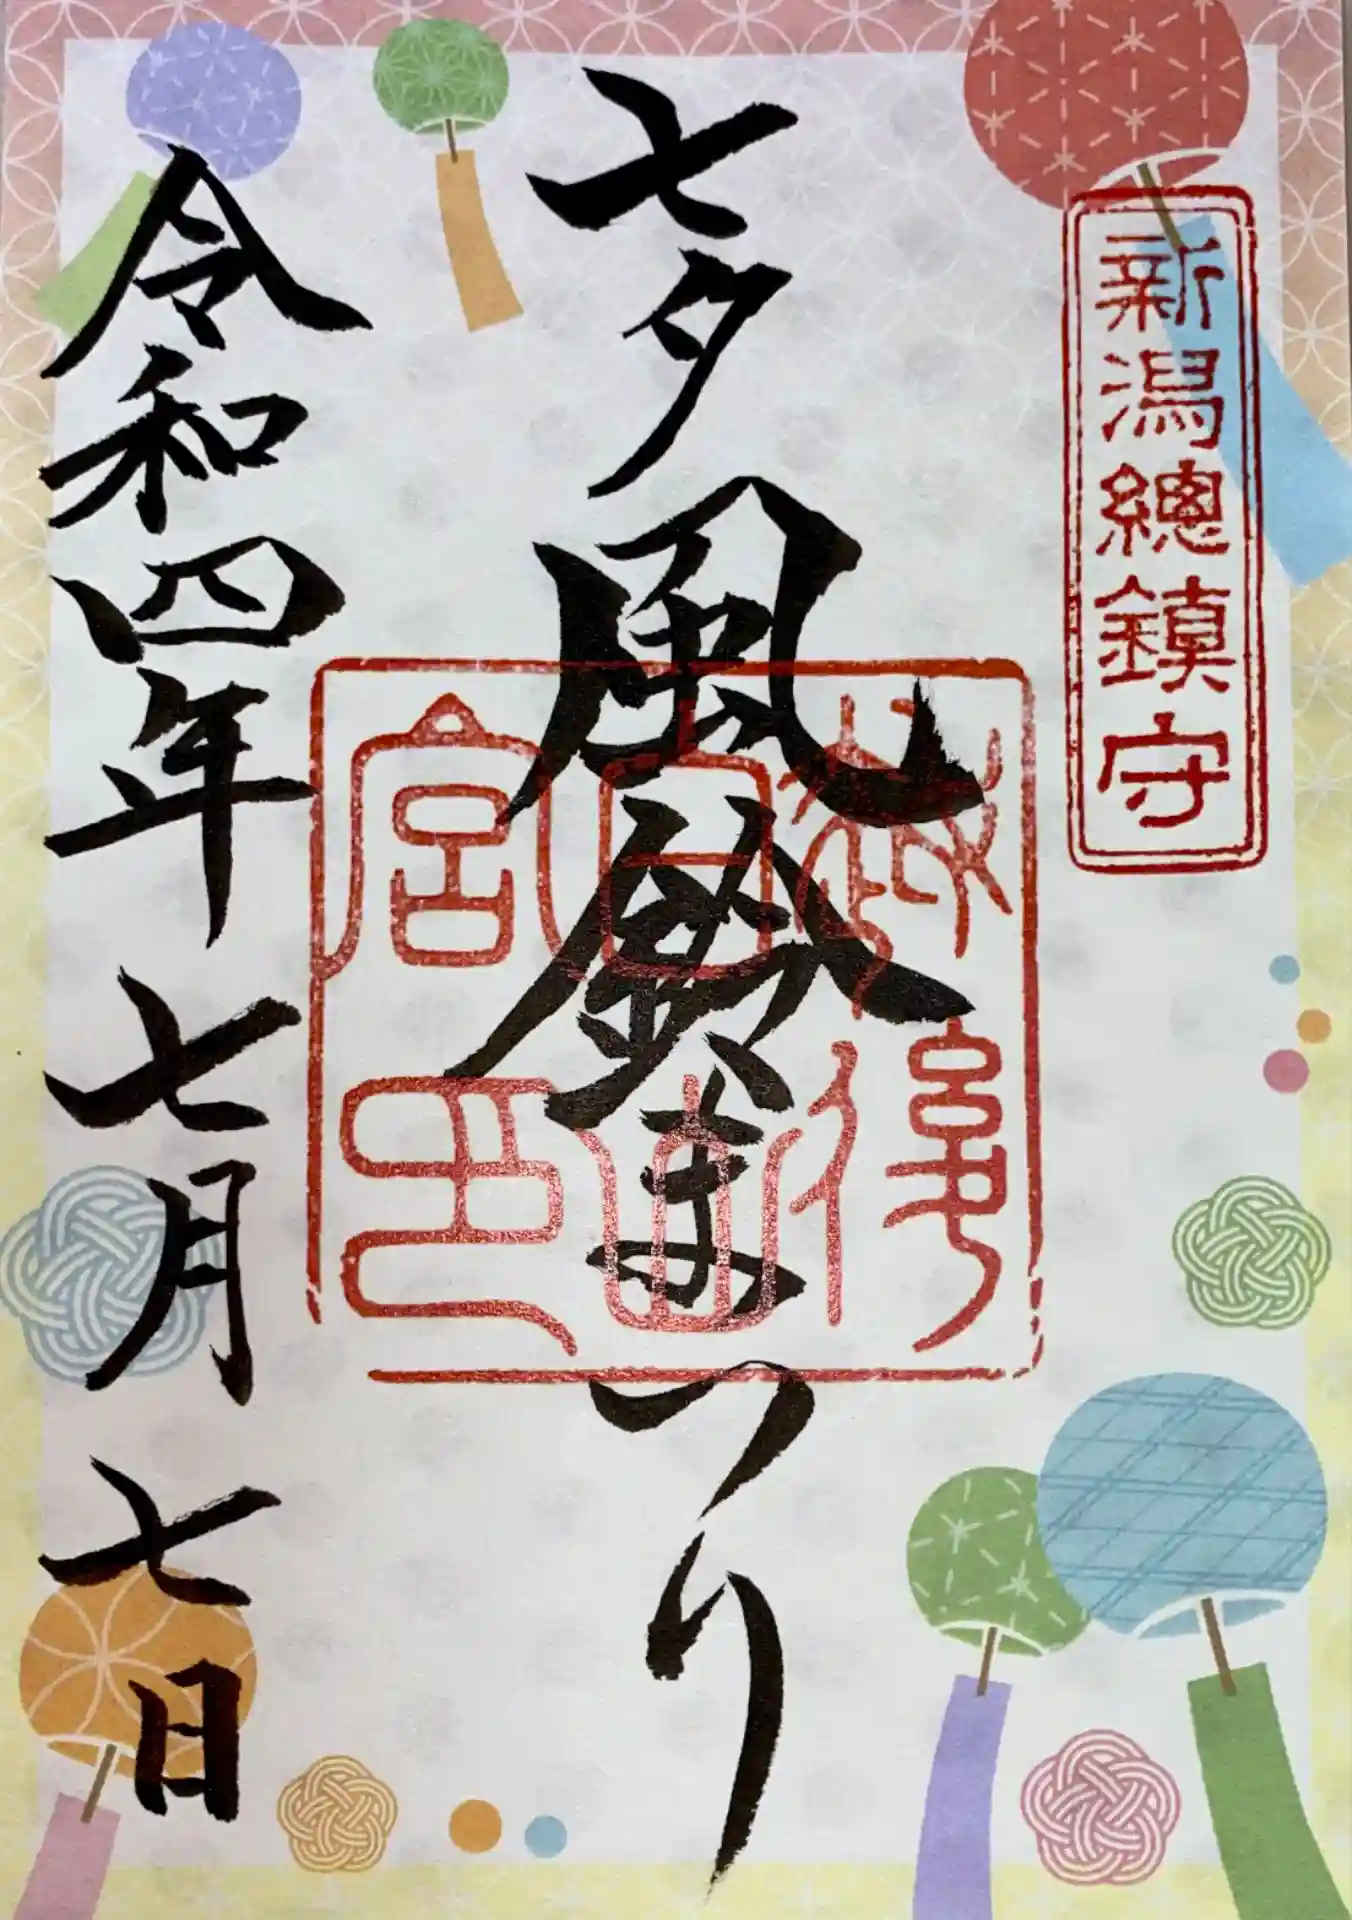 新潟總鎮守
七夕風鈴まつり
越後
白山
宮印
令和四年七月七日